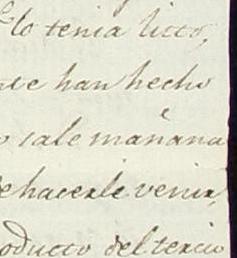 lo tenia listo,
se han hecho
o sale mañana
de hacerle venir,
oducto del tercio